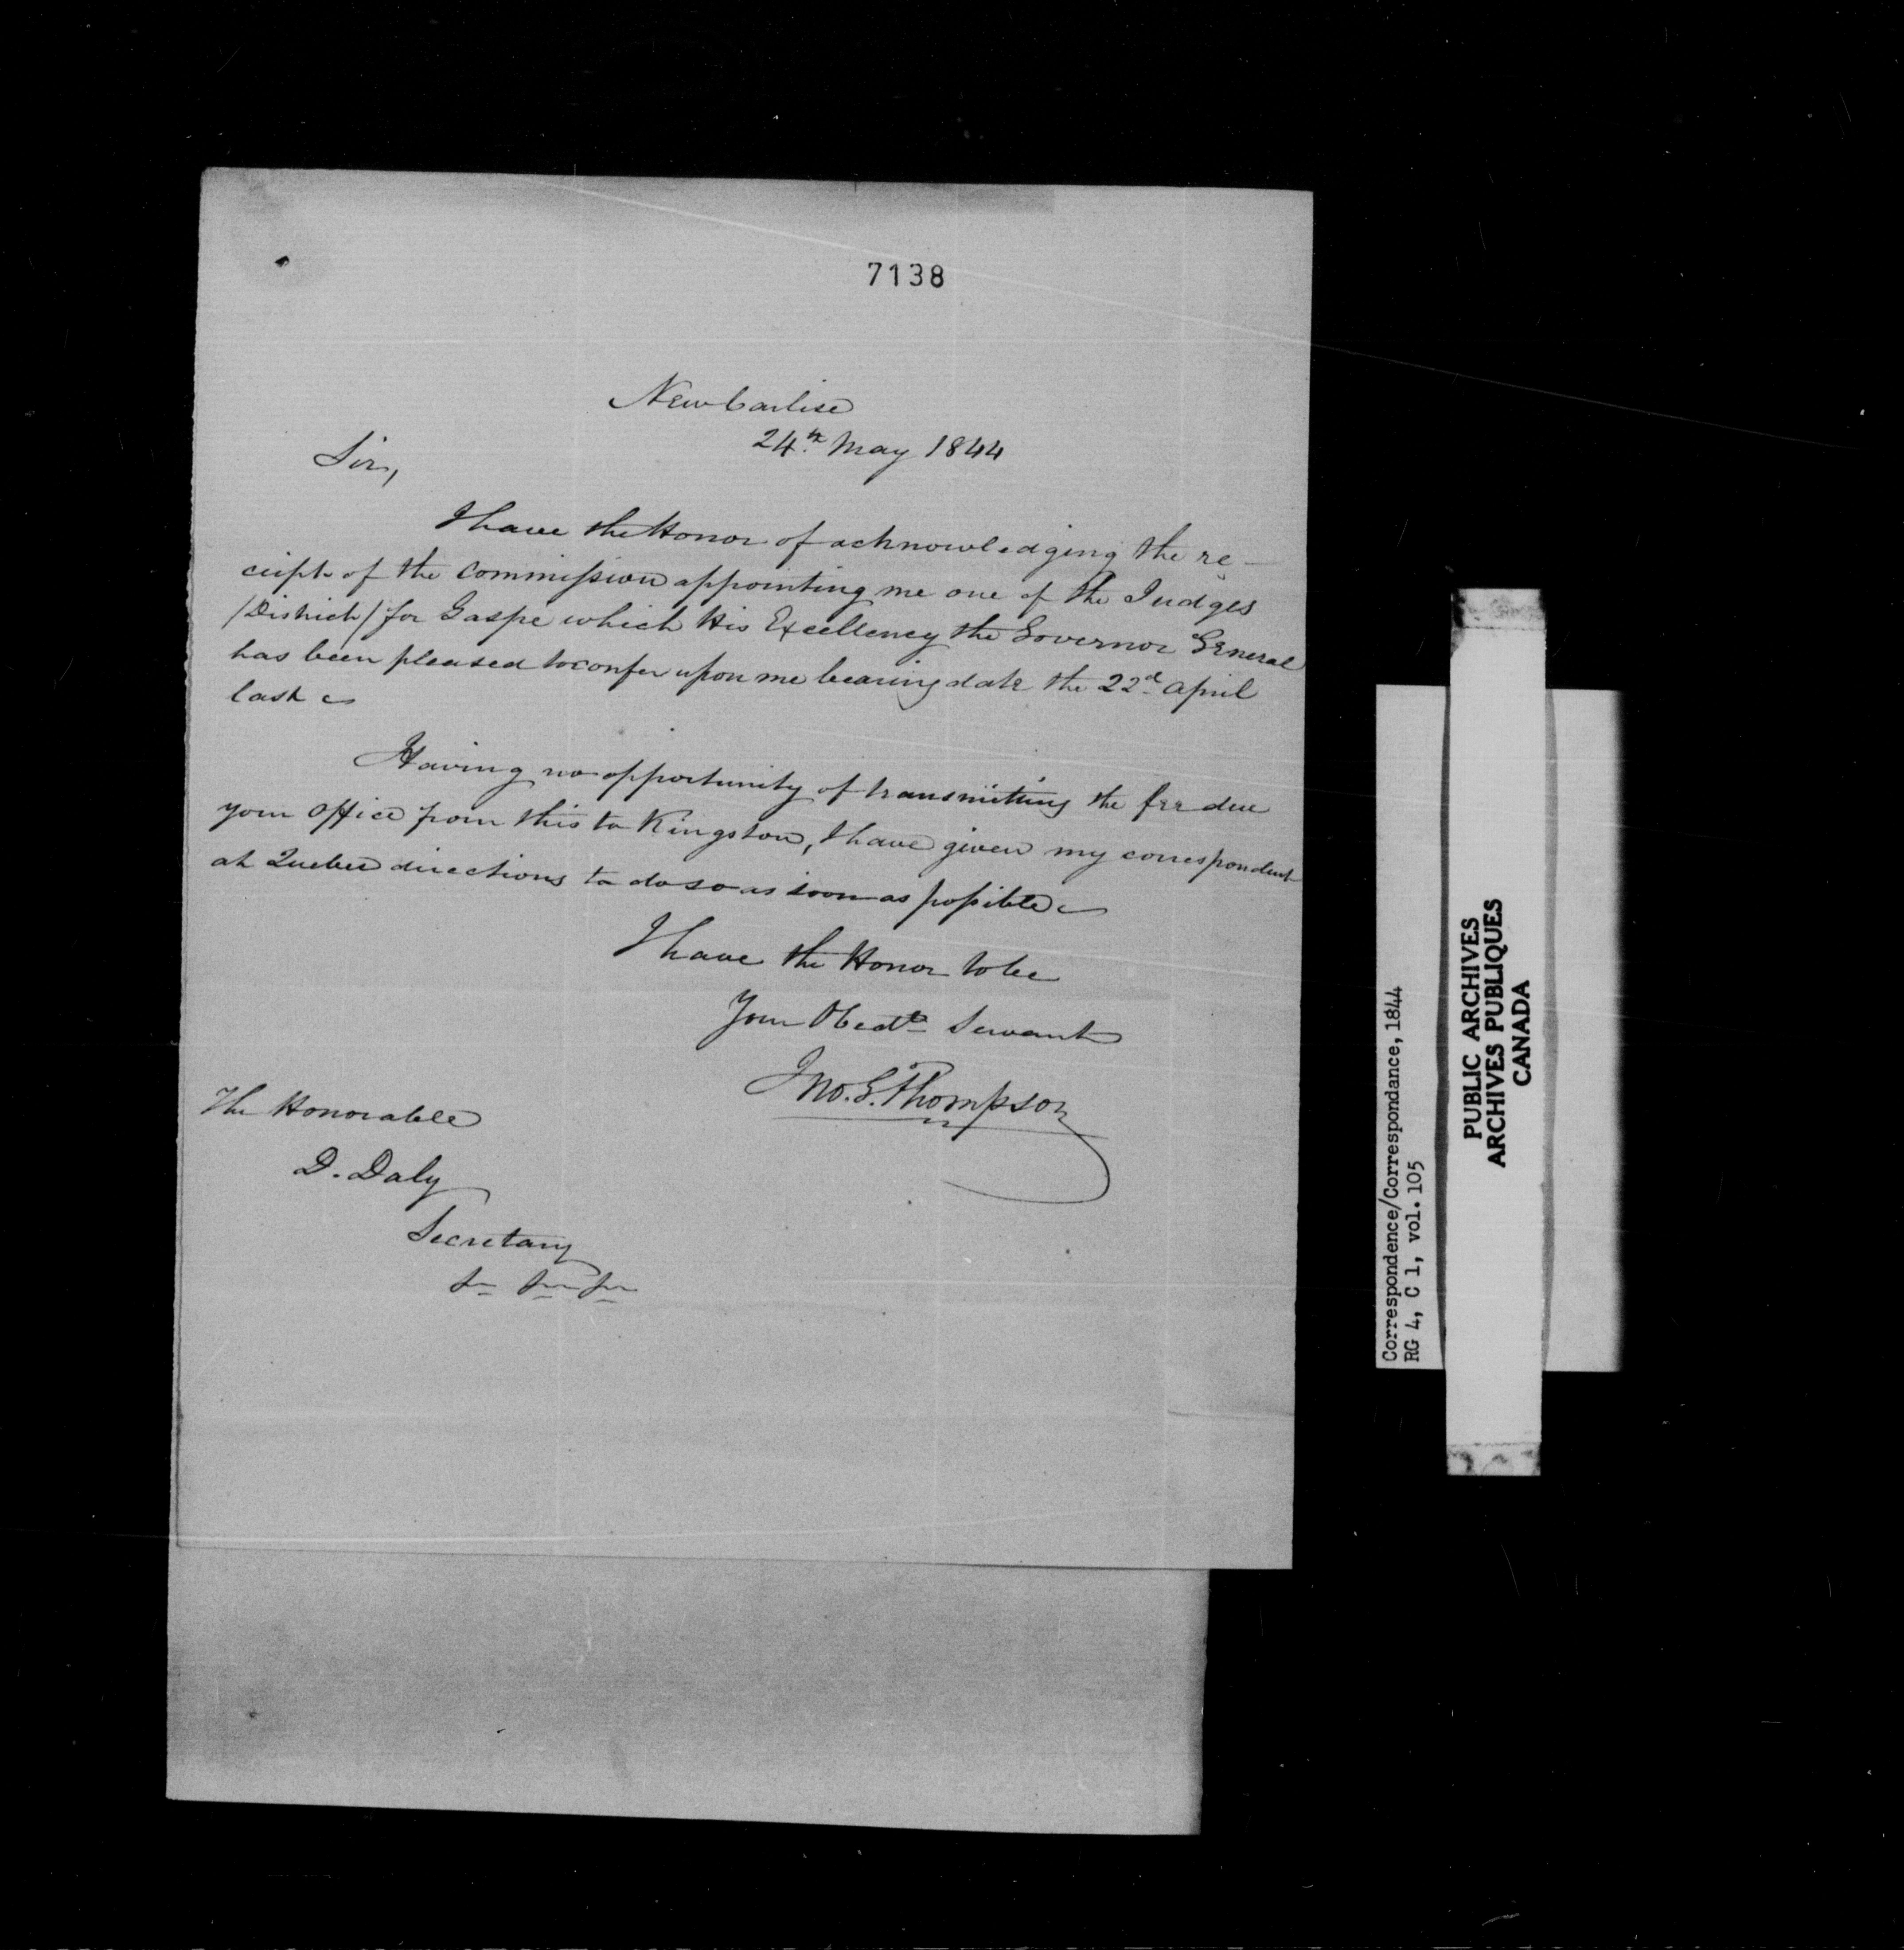 7138
New Carlise
24th. May 1844
Sir,
I have the Honor of acknowledging the re-
ceipt of the Commission appointing me one of the Judges
/District/ for Gaspe which His Excellency the Governor General
has been pleased to confer upon me bearing date the 22d April
last
Having no opportunity of transmitting the fee due
your Office from this to Kingston, I have given my correspondent
at Quebec directions to do so as soon as possible
I have the Honor to be
Your Obedt. Servant
Jno. G. Thompson
The Honorable
D. Daly
Secretary
Correspondence/Correspondance, 1844
RG 4, C 1, vol. 105
PUBLIC ARCHIVES
ARCHIVES PUBLIQUES
CANADA